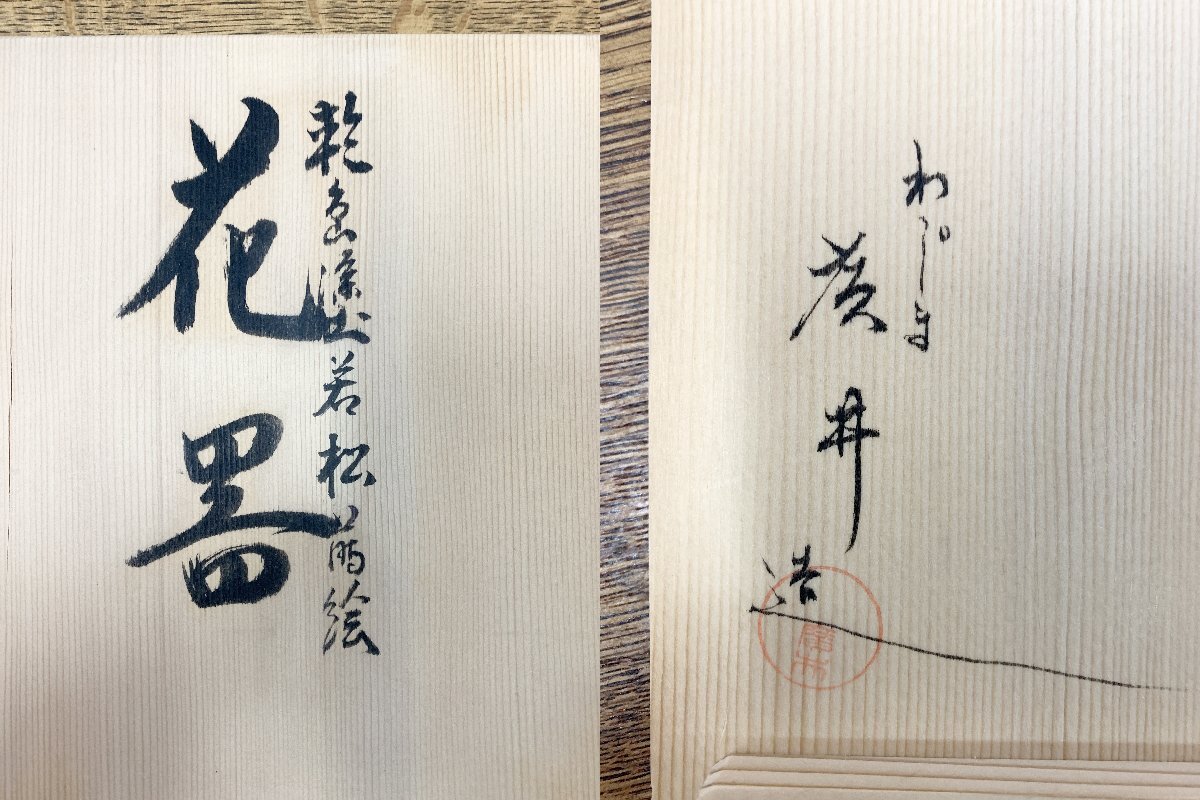 乾漆若松蒔絵
花器
わじま
廣井
造